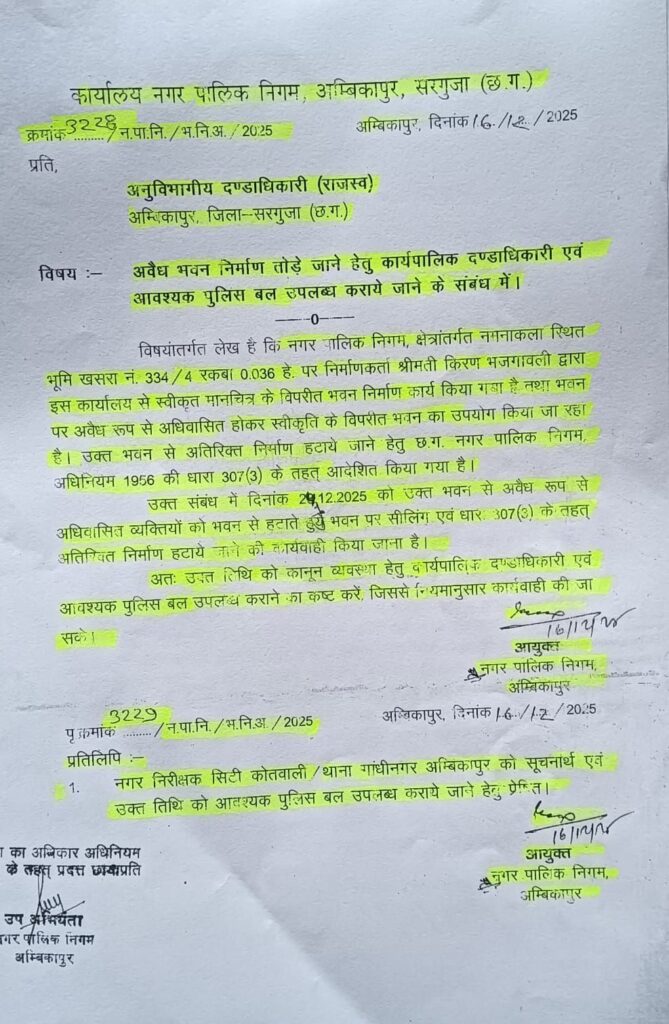 कार्यालय नगर पालिक निगम, अम्बिकापुर, सरगुजा (छ.ग.)
क्रमांक 3228 / न.पा.नि. / भ.नि.अ. / 2025 अम्बिकापुर, दिनांक 16 / 12 / 2025
प्रति,
अनुविभागीय दण्डाधिकारी (राजस्व)
अम्बिकापुर, जिला–सरगुजा (छ.ग.)
विषय :– अवैध भवन निर्माण तोड़े जाने हेतु कार्यपालिक दण्डाधिकारी एवं
आवश्यक पुलिस बल उपलब्ध कराये जाने के संबंध में।
——0——
विषयांतर्गत लेख है कि नगर पालिक निगम, क्षेत्रांतर्गत नमनाकला स्थित
भूमि खसरा नं. 334/4 रकबा 0.036 हे. पर निर्माणकर्ता श्रीमती किरण भजगावली द्वारा
इस कार्यालय से स्वीकृत मानचित्र के विपरीत भवन निर्माण कार्य किया गया है तथा भवन
पर अवैध रूप से अधिवासित होकर स्वीकृति के विपरीत भवन का उपयोग किया जा रहा
है। उक्त भवन से अतिरिक्त निर्माण हटाये जाने हेतु छ.ग. नगर पालिक निगम,
अधिनियम 1956 की धारा 307(3) के तहत् आदेशित किया गया है।
उक्त संबंध में दिनांक 12.2025 को उक्त भवन से अवैध रूप से
अधिवासित व्यक्तियों को भवन से हटाते हुये भवन पर सीलिंग एवं धारा 307(3) के तहत्
अतिरिक्त निर्माण हटाये जाने की कार्यवाही किया जाना है।
अतः उक्त तिथि को कानून व्यवस्था हेतु कार्यपालिक दण्डाधिकारी एवं
आवश्यक पुलिस बल उपलब्ध कराने का कष्ट करें, जिससे नियमानुसार कार्यवाही की जा
सके।
16/12/25
आयुक्त
नगर पालिक निगम,
अम्बिकापुर
पृ.क्रमांक 3229 / न.पा.नि. / भ.नि.अ. / 2025 अम्बिकापुर, दिनांक 16 / 12 / 2025
प्रतिलिपि :–
1. नगर निरीक्षक सिटी कोतवाली / थाना गांधीनगर अम्बिकापुर को सूचनार्थ एवं
उक्त तिथि को आवश्यक पुलिस बल उपलब्ध कराये जाने हेतु प्रेषित।
16/12/25
आयुक्त
नगर पालिक निगम,
अम्बिकापुर
का अधिकार अधिनियम
के तहत् प्रदत्त छायाप्रति
उप अभियंता
नगर पालिक निगम
अम्बिकापुर